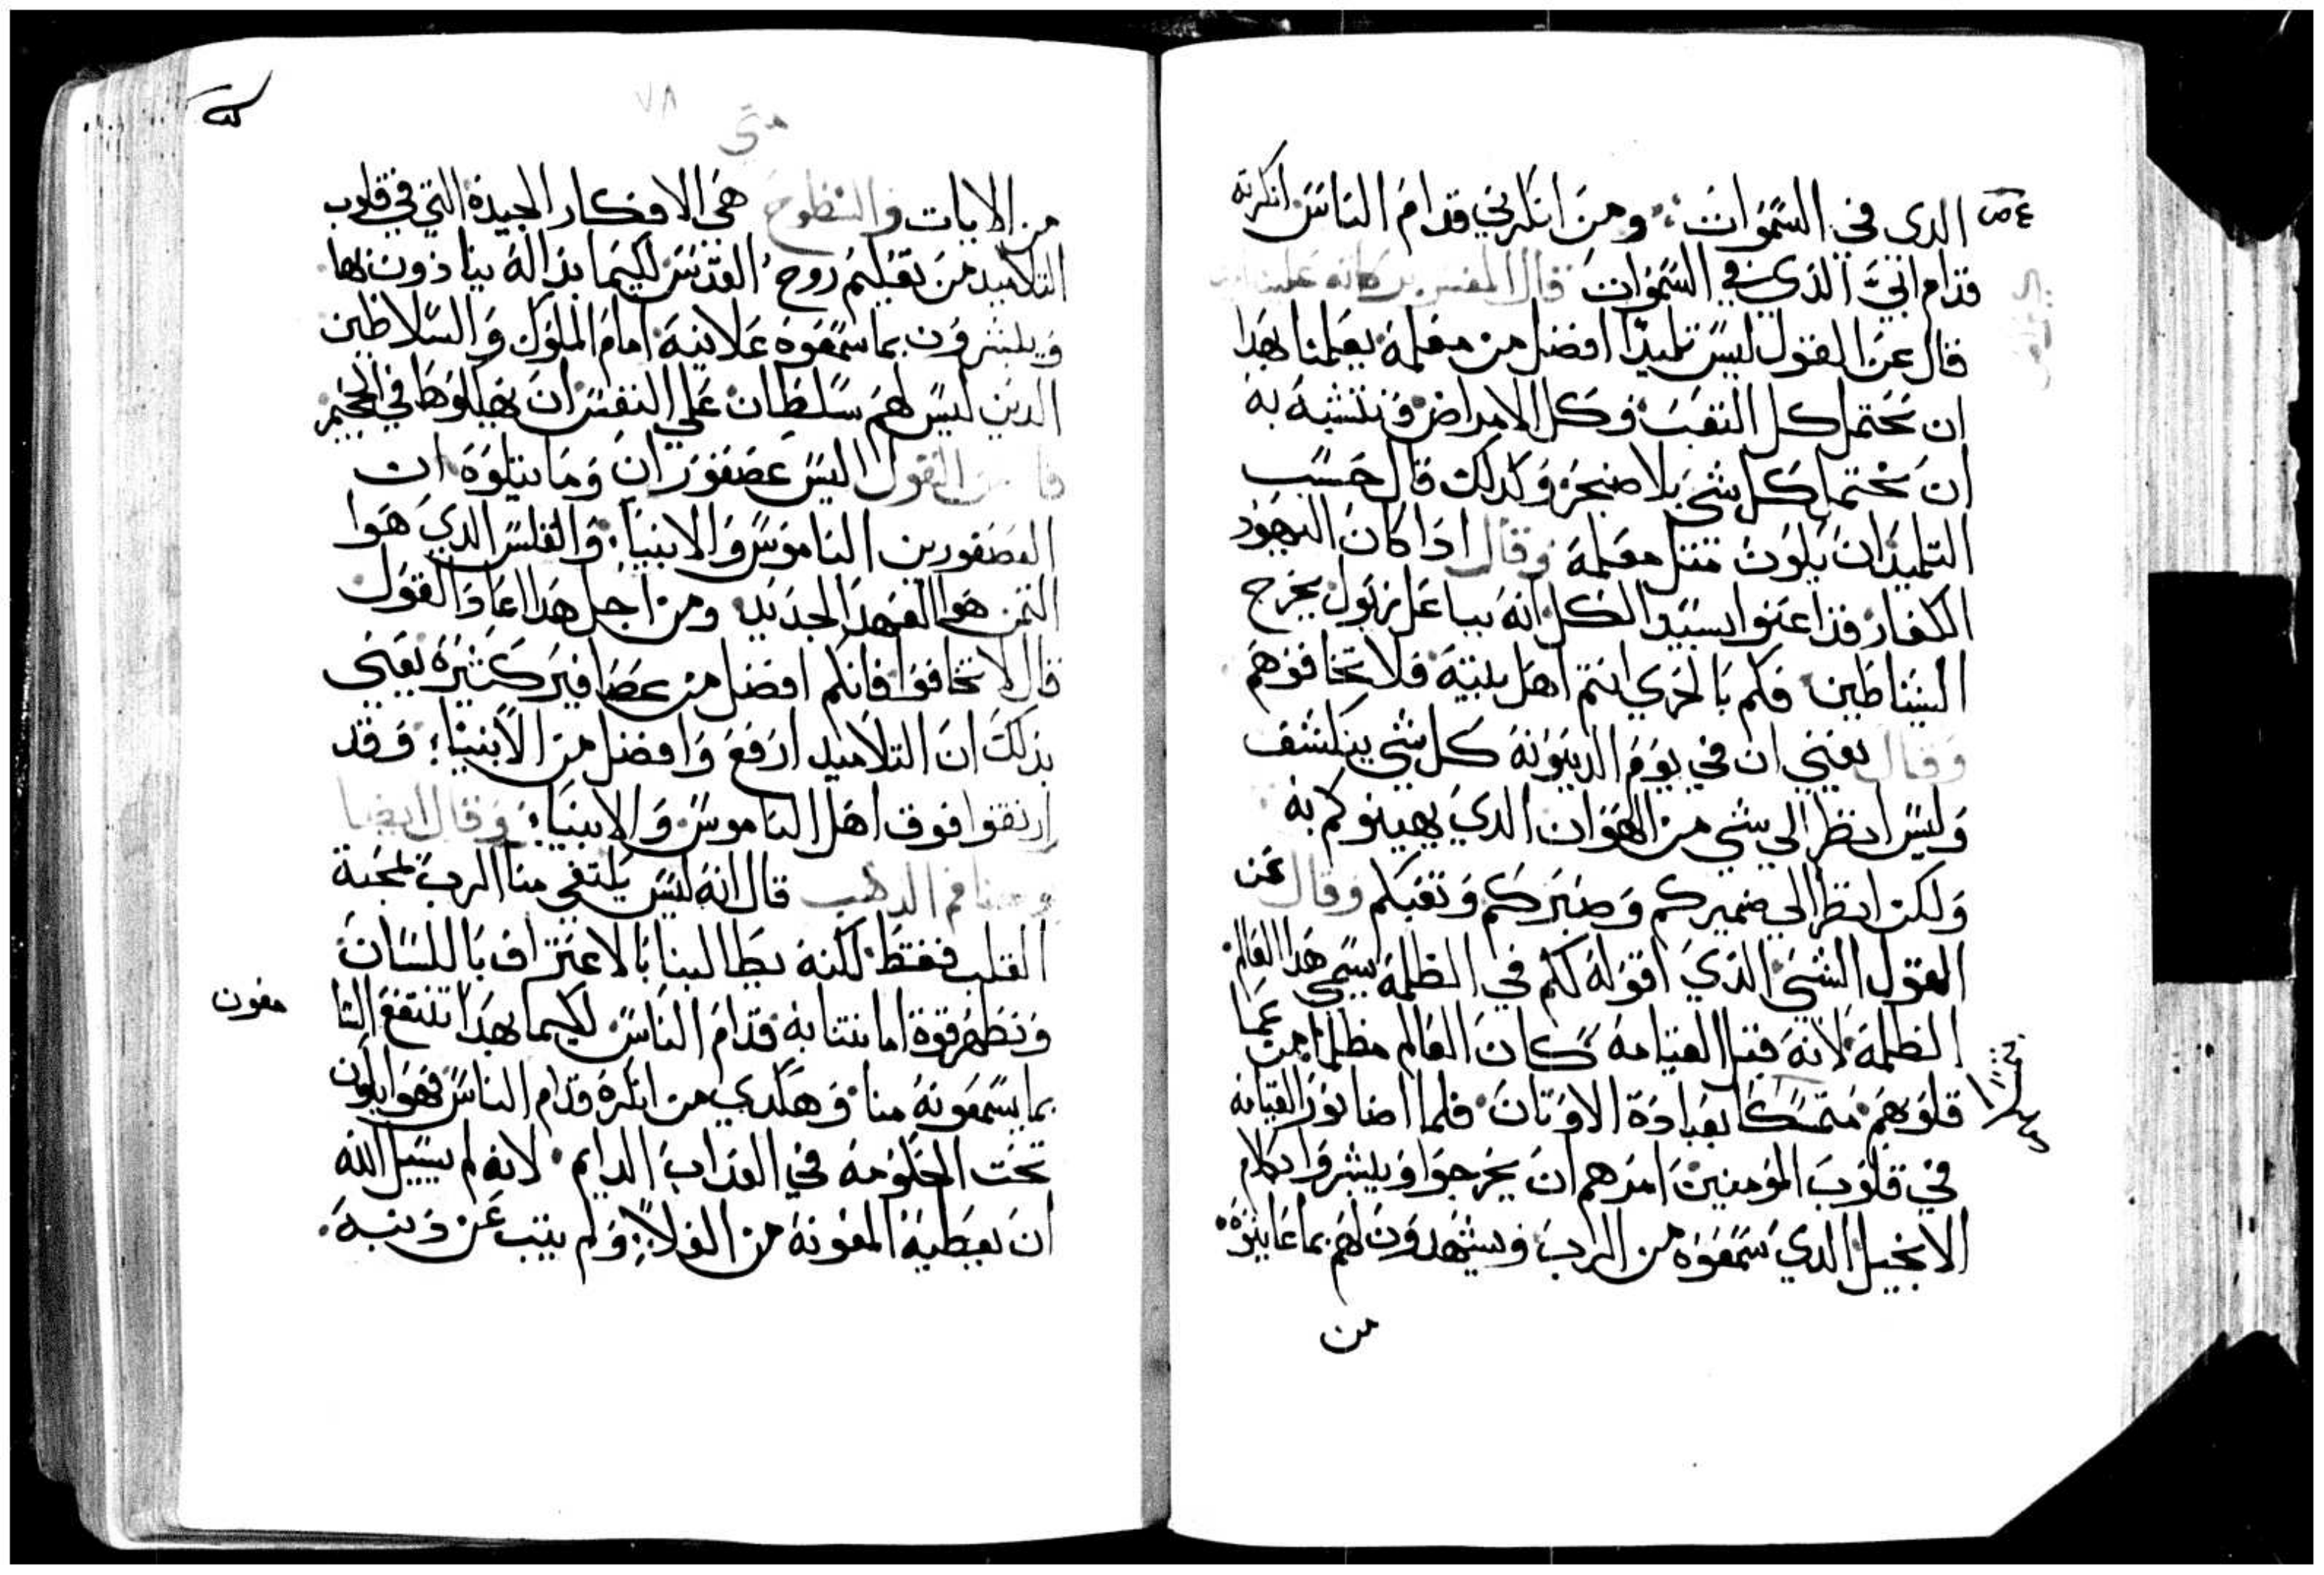 الدى في السموات ؞ ومن انكرني قدام الناس انكرته
قدام ابي الذي في السموات قال المفسر
قال عن القول ليس تلميذا افضل من معلمه يعلمنا بهدا
ان نحتمل كل التعب وكل الامراض ونتشبه به
ان نحتمل كل شي بلا ضجر وكدلك قال حسب
التلميذ ان يكون متل معلمه وقال اذا كان اليهود
الكفار قد اعنوا بسيد الكل انه بباعلزبول يخرج
الشياطين فكم بالحري انتم اهل بيته فلا تخافوهم
وقال يعني ان في يوم الدينونه كل شي ينكشف
وليس انظر الي شي من الهوان الدي يهينوكم به
ولكن انظر الي ضميركم وصبركم وتعبكم وقال عن
القول الشي الذي اقوله لكم في الظلمة يسمي هدا العالم
الظلمة لانه قبل القيامه كان العالم مظلما من عما
قلوبهم متمسكا بعبادة الاوتان فلما اضا نور القيامه
في قلوب المومنين امرهم ان يخرجوا ويبشروا بكلام
الانجيل الدي سمعوه من الرب ويشهدون لهم بما عاينوه
من
٧٨
متى
من الايات والسطوح هي الافكار الجيدة التي في قلوب
التلاميد من تقبلهم روح القدس لكيما بدالة ينادون بها
ويبشرون بما سمعوه علانية امام الملوك والسلاطين
الدين ليس لهم سلطان علي النفس ان يهلكوها في الجحيم
القول اليس عصفوران وما يتلوه ان
العصفورين الناموس والانبيا والفلس الدي هوا
التمن هوا العهد الجديد ومن اجل هدا اعاد القول
قال لا تخافوا فانكم افضل من عصافير كثيرة يعني
بذلك ان التلاميد ارفع وافضل من الانبيا ؛ وقد
ارتقوا فوق اهل الناموس والانبيا ؛ وقال ايضا
يوحنا فم الدهب قال انه ليس يكتفي منا الرب بمحبة
القلب فقط لكنه يطالبنا بالاعتراف باللسان
ونظهر قوة امانتنا به قدام الناس لكيما بهدا تنتفع
بما يسمعونه منا وهكدي من انكره قدام الناس فهوا يكون
تحت الحكومه في العداب الدايم لانه لم يسيل الله
ان يعطيه المعونه من الولا ؛ ولم يتب عن ذنبه